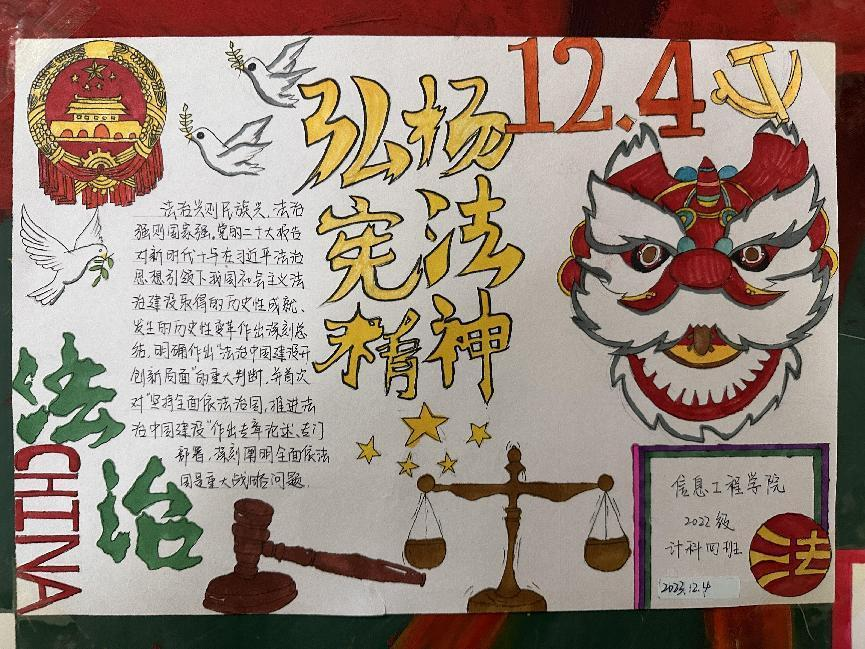 12.4
弘扬
宪法
精神
法治兴则民族兴,法治
强则国家强。党的二十大报告
对新时代十年在习近平法治
思想引领下我国社会主义法
治建设取得的历史性成就、
发生的历史性变革作出深刻总
结,明确作出"法治中国建设开
创新局面"的重大判断,并首次
对"坚持全面依法治国,推进法
治中国建设"作出专章论述、专门
部署,深刻阐明全面依法
国是重大战略问题.
法治
CHINA
信息工程学院
2022级
计科四班
2023.12.4
法